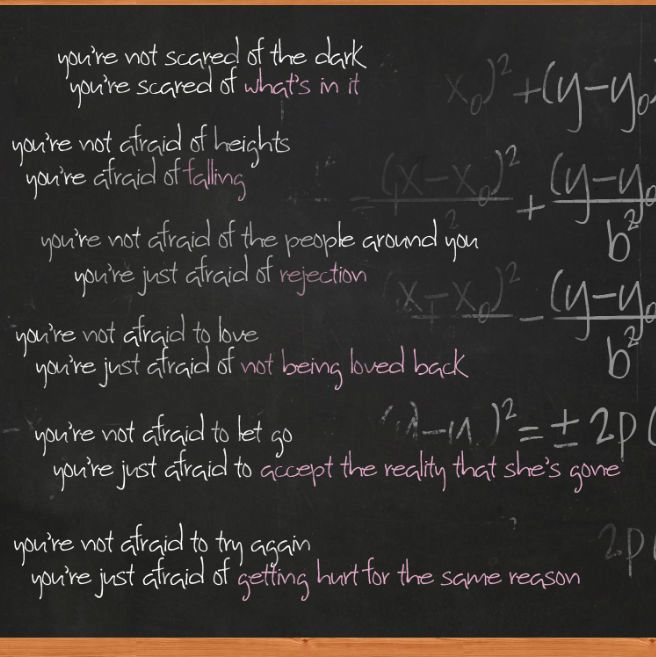 you're not scared of the dark
you're scared of what's in it
you're not afraid of heights
you're afraid of falling
you're not afraid of the people around you
you're just afraid of rejection
you're not afraid to love
you're just afraid of not being loved back
you're not afraid to let go
you're just afraid to accept the reality that she's gone
you're not afraid to try again
you're just afraid of getting hurt for the same reason
x₀)² + (y-y₀)
(x-x₀)² + (y-y₀
b²
(x-x₀)² - (y-y₀
b²
)² = ± 2p(
2p(